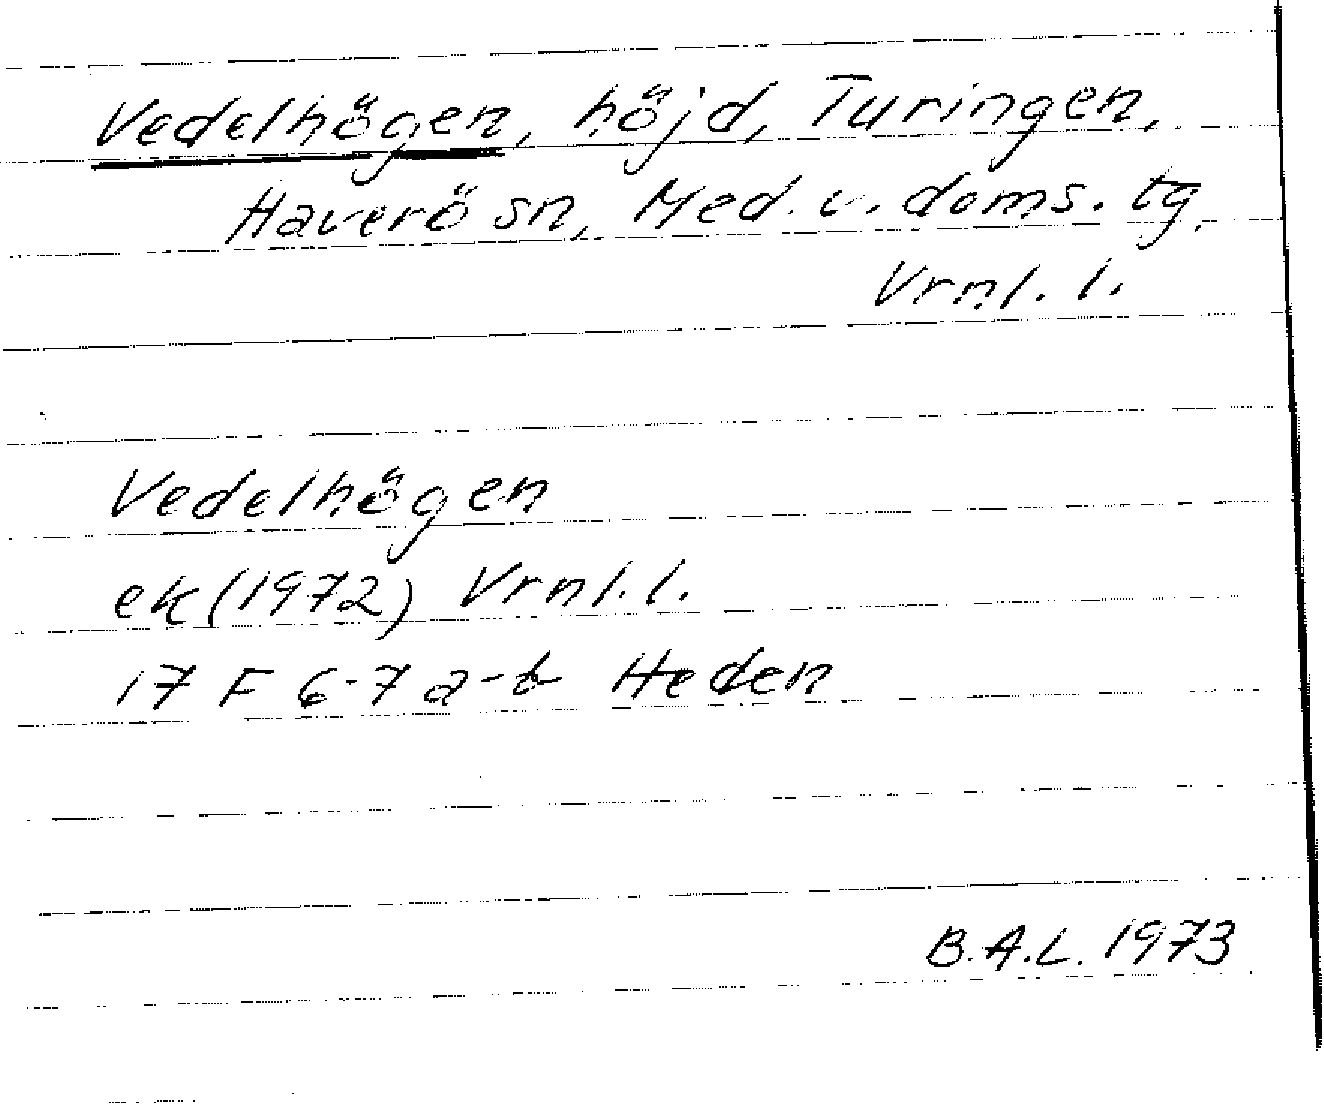 Vedelhögen, höjd, Turingen,
Haverö sn, Med. v. doms. tg,
Vrnl. l.
Vedelhögen
ek (1972) Vrnl. l.
17 F 6-7 a-b Heden
B.A.L. 1973